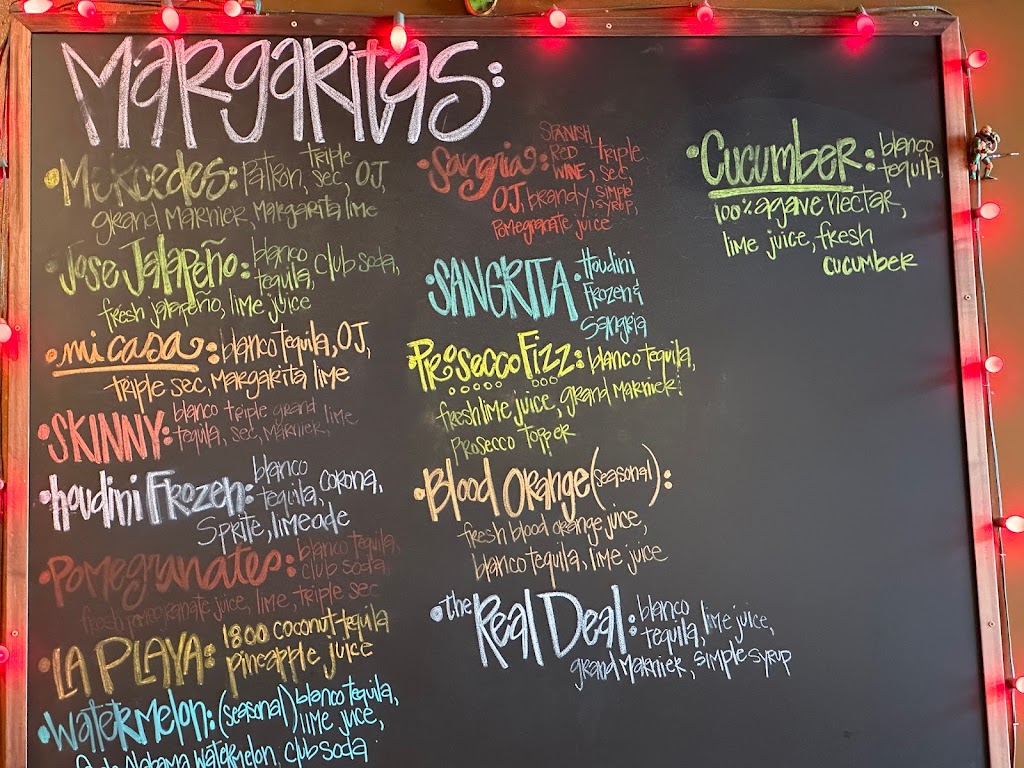 Margaritas:
• Mercedes: Patron, triple sec, OJ,
grand Marnier, Margarita lime
• Jose Jalapeño: blanco tequila, club soda,
fresh jalapeño, lime juice
• mi casa: blanco tequila, OJ,
triple sec, Margarita lime
• SKINNY: blanco tequila, triple sec, grand Marnier, lime
• houdini Frozen: blanco tequila, corona,
Sprite, limeade
• Pomegranates: blanco tequila, club soda,
fresh pomegranate juice, lime, triple sec
• LA PLAYA: 1800 coconut tequila
pineapple juice
• Watermelon: (seasonal) blanco tequila,
lime juice,
Alabama watermelon, club soda
• Sangria: SPANISH RED WINE, triple sec,
OJ, brandy, simple syrup,
Pomegranate juice
• SANGRITA: Houdini
Frozen &
Sangria
• Prosecco Fizz: blanco tequila,
fresh lime juice, grand Marnier
Prosecco Topper
• Blood Orange (seasonal):
fresh blood orange juice,
blanco tequila, lime juice
• the Real Deal: blanco tequila, lime juice,
grand Marnier, simple syrup
• Cucumber: blanco tequila,
100% agave nectar,
lime juice, fresh
cucumber